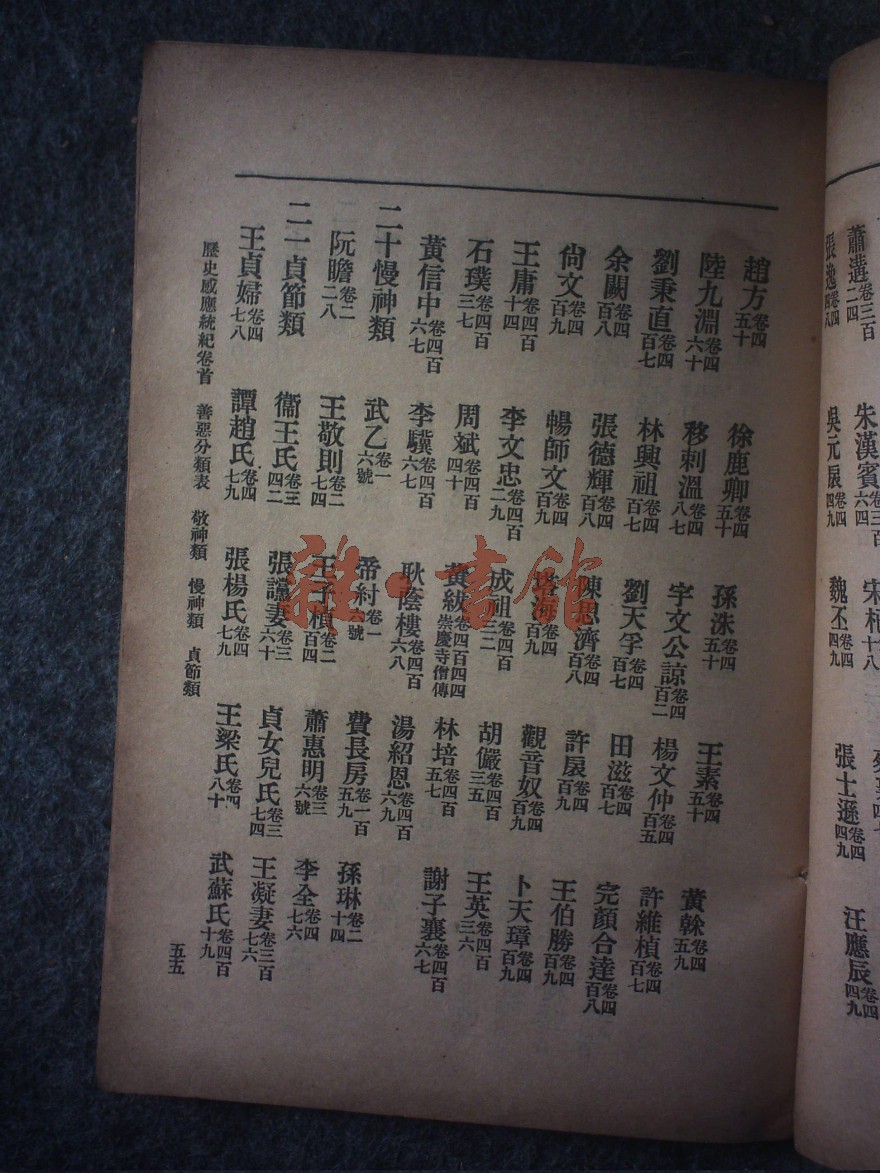 蕭溝卷三百二四 朱漢賓卷三百六四
張逸卷四四八 吳元扆卷四四九 魏丕卷四四九 張士遜卷四四九 汪應辰卷四四九
趙方卷四五十 徐鹿卿卷四五十 孫洙卷四五十 王素卷四五十 黃榦卷四五九
陸九淵卷四六十 移剌溫卷四八七 宇文公諒卷四百二 楊文仲卷四百五 許維楨卷四百七
劉秉直卷四百七 林興祖卷四百七 劉天孚卷四百七 田滋卷四百七 完顏合達卷四百八
余闕卷四百八 張德輝卷四百八 陳思濟卷四百八 許扆卷四百九 王伯勝卷四百九
尙文卷四百九 暢師文卷四百九 塔海卷四百九 觀音奴卷四百九 卜天璋卷四百九
王庸卷四百十四 李文忠卷四百二九 成祖卷四百三二 胡儼卷四百三五 王英卷四百三六
石璞卷四百三七 周斌卷四百四十 黃紱卷四百四四崇慶寺僧傳 林培卷四百五七 謝子襄卷四百六七
黃信中卷四百六七 李驥卷四百六七 耿蔭樓卷四百六八 湯紹恩卷四百六九
二十慢神類 武乙卷一六號 帝紂卷一六號 費長房卷一百五九 孫琳卷二十四
阮瞻卷二二八 王敬則卷二七四 王子楨卷二百四 蕭惠明卷三六號 李全卷四七六
二一貞節類 衞王氏卷三四二 張讜妻卷三六十 貞女兒氏卷三七四 王凝妻卷三百七六
王貞婦卷四七八 譚趙氏卷四七九 張楊氏卷四七九 王梁氏卷四八十 武蘇氏卷四百十九
歷史感應統紀卷首 善惡分類表 敬神類 慢神類 貞節類 五五
雜·書館